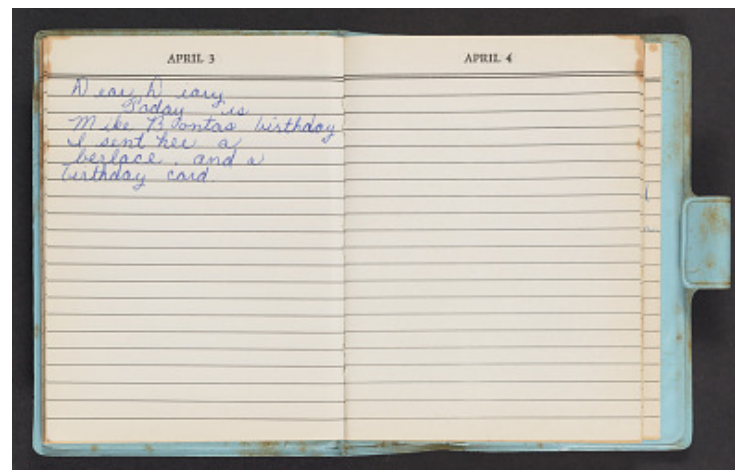 APRIL 3
Dear Diary
Today is
Mike Bontas birthday
I sent her a
and a
birthday card.
APRIL 4